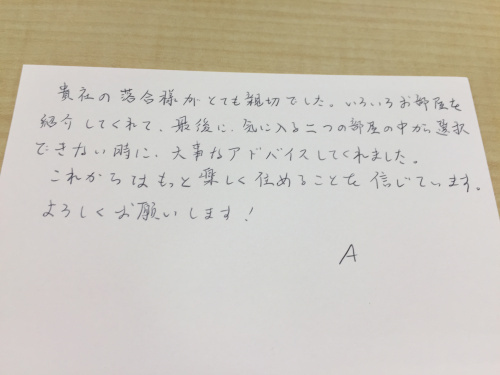 貴社の落合様がとても親切でした。いろいろお部屋を
紹介してくれて、最後に、気に入る二つの部屋の中から選択
できない時に、大事なアドバイスしてくれました。
これからはもっと楽しく住めることを信じています。
よろしくお願いします!
A